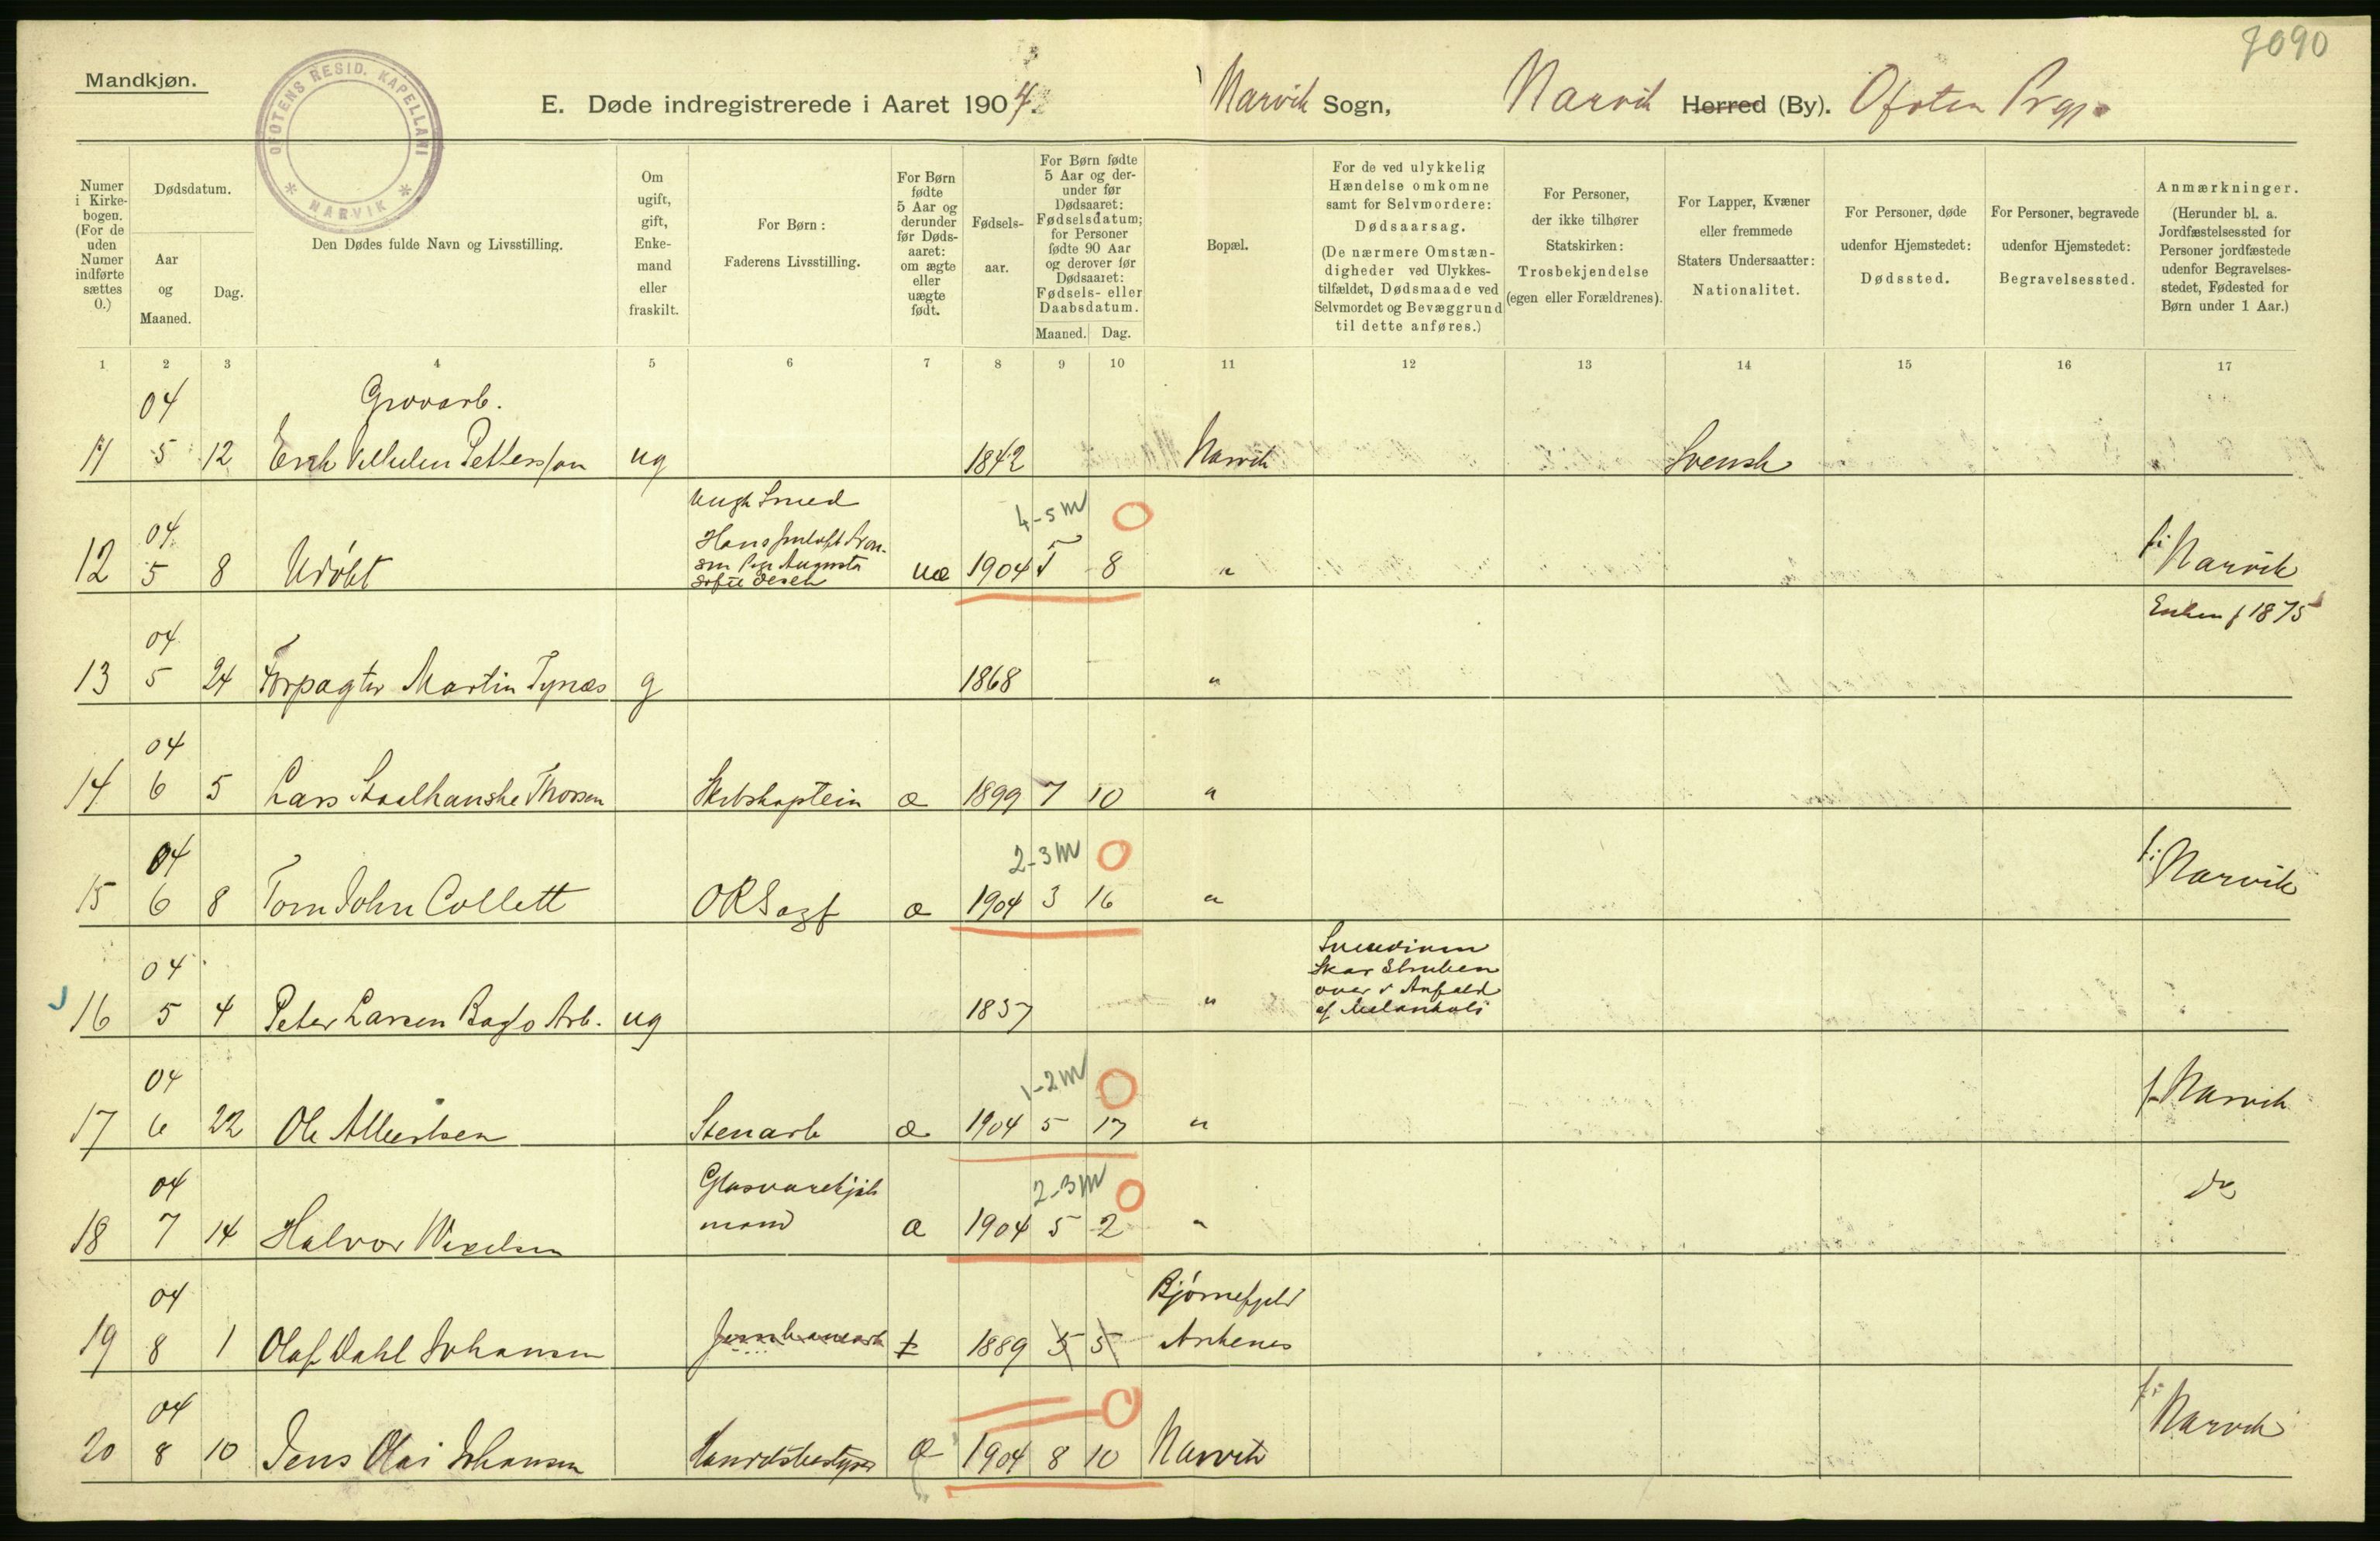 7090
Mandkjøn.
OFOTENS RESID. KAPELLANI
* NARVIK *
E. Døde indregistrerede i Aaret 1904.
Narvik Sogn, Narvik Herred (By). Ofoten Prgj.
Numer i Kirke-bogen. (For de uden Numer indførte sættes 0.)
Dødsdatum.
Aar og Maaned.
Dag.
Den Dødes fulde Navn og Livsstilling.
Om ugift, gift, Enke-mand eller fraskilt.
For Børn:
Faderens Livsstilling.
For Børn fødte 5 Aar og derunder før Døds-aaret: om ægte eller uægte født.
Fødsels-aar.
For Børn fødte 5 Aar og der-under før Dødsaaret: Fødselsdatum; for Personer fødte 90 Aar og derover før Dødsaaret: Fødsels- eller Daabsdatum.
Maaned. Dag.
Bopæl.
For de ved ulykkelig Hændelse omkomne samt for Selvmordere: Dødsaarsag.
(De nærmere Omstæn-digheder ved Ulykkes-tilfældet, Dødsmaade ved Selvmordet og Bevæggrund til dette anføres.)
For Personer, der ikke tilhører Statskirken: Trosbekjendelse (egen eller Forældrenes).
For Lapper, Kvæner eller fremmede Staters Undersaatter: Nationalitet.
For Personer, døde udenfor Hjemstedet: Dødssted.
For Personer, begravede udenfor Hjemstedet: Begravelsessted.
Anmærkninger.
(Herunder bl. a. Jordfæstelsessted for Personer jordfæstede udenfor Begravelses-stedet, Fødested for Børn under 1 Aar.)
1 2 3 4 5 6 7 8 9 10 11 12 13 14 15 16 17
04 Grovarb.
11 5 12 Erik Vilhelm Pettersson ug 1842 Narvik Svensk
Ungk Smed
4-5 m
04 Hans
12 5 8 Udøbt Augusta uæ 1904 5 8 " f. i Narvik
Sofie
Enken f 1875
04
13 5 24 Forpagter Martin Tynæs g 1868 "
04
14 6 5 Lars Staalhanske Thorsen Skibskaptein æ 1899 7 10 "
04 2-3 m
15 6 8 Tom John Collett ORSagf æ 1904 3 16 " f. i Narvik
Suicidium
04 Skar Struben
over i Anfald
16 5 4 Peter Larsen Arb. ug 1837 " af Melankoli
04 1-2 m
17 6 22 Ole Albertsen Stenarb æ 1904 5 17 " f. Narvik
04 Glasvarekjøb 2-3 m do
18 7 14 Halvor mand æ 1904 5 2 "
04 Bjørnefjeld
19 8 1 Olaf Dahl Johansen Jernbanearb 1889 5 5 Ankenes
04
20 8 10 Jens Olai Johansen æ 1904 8 10 Narvik f. i Narvik